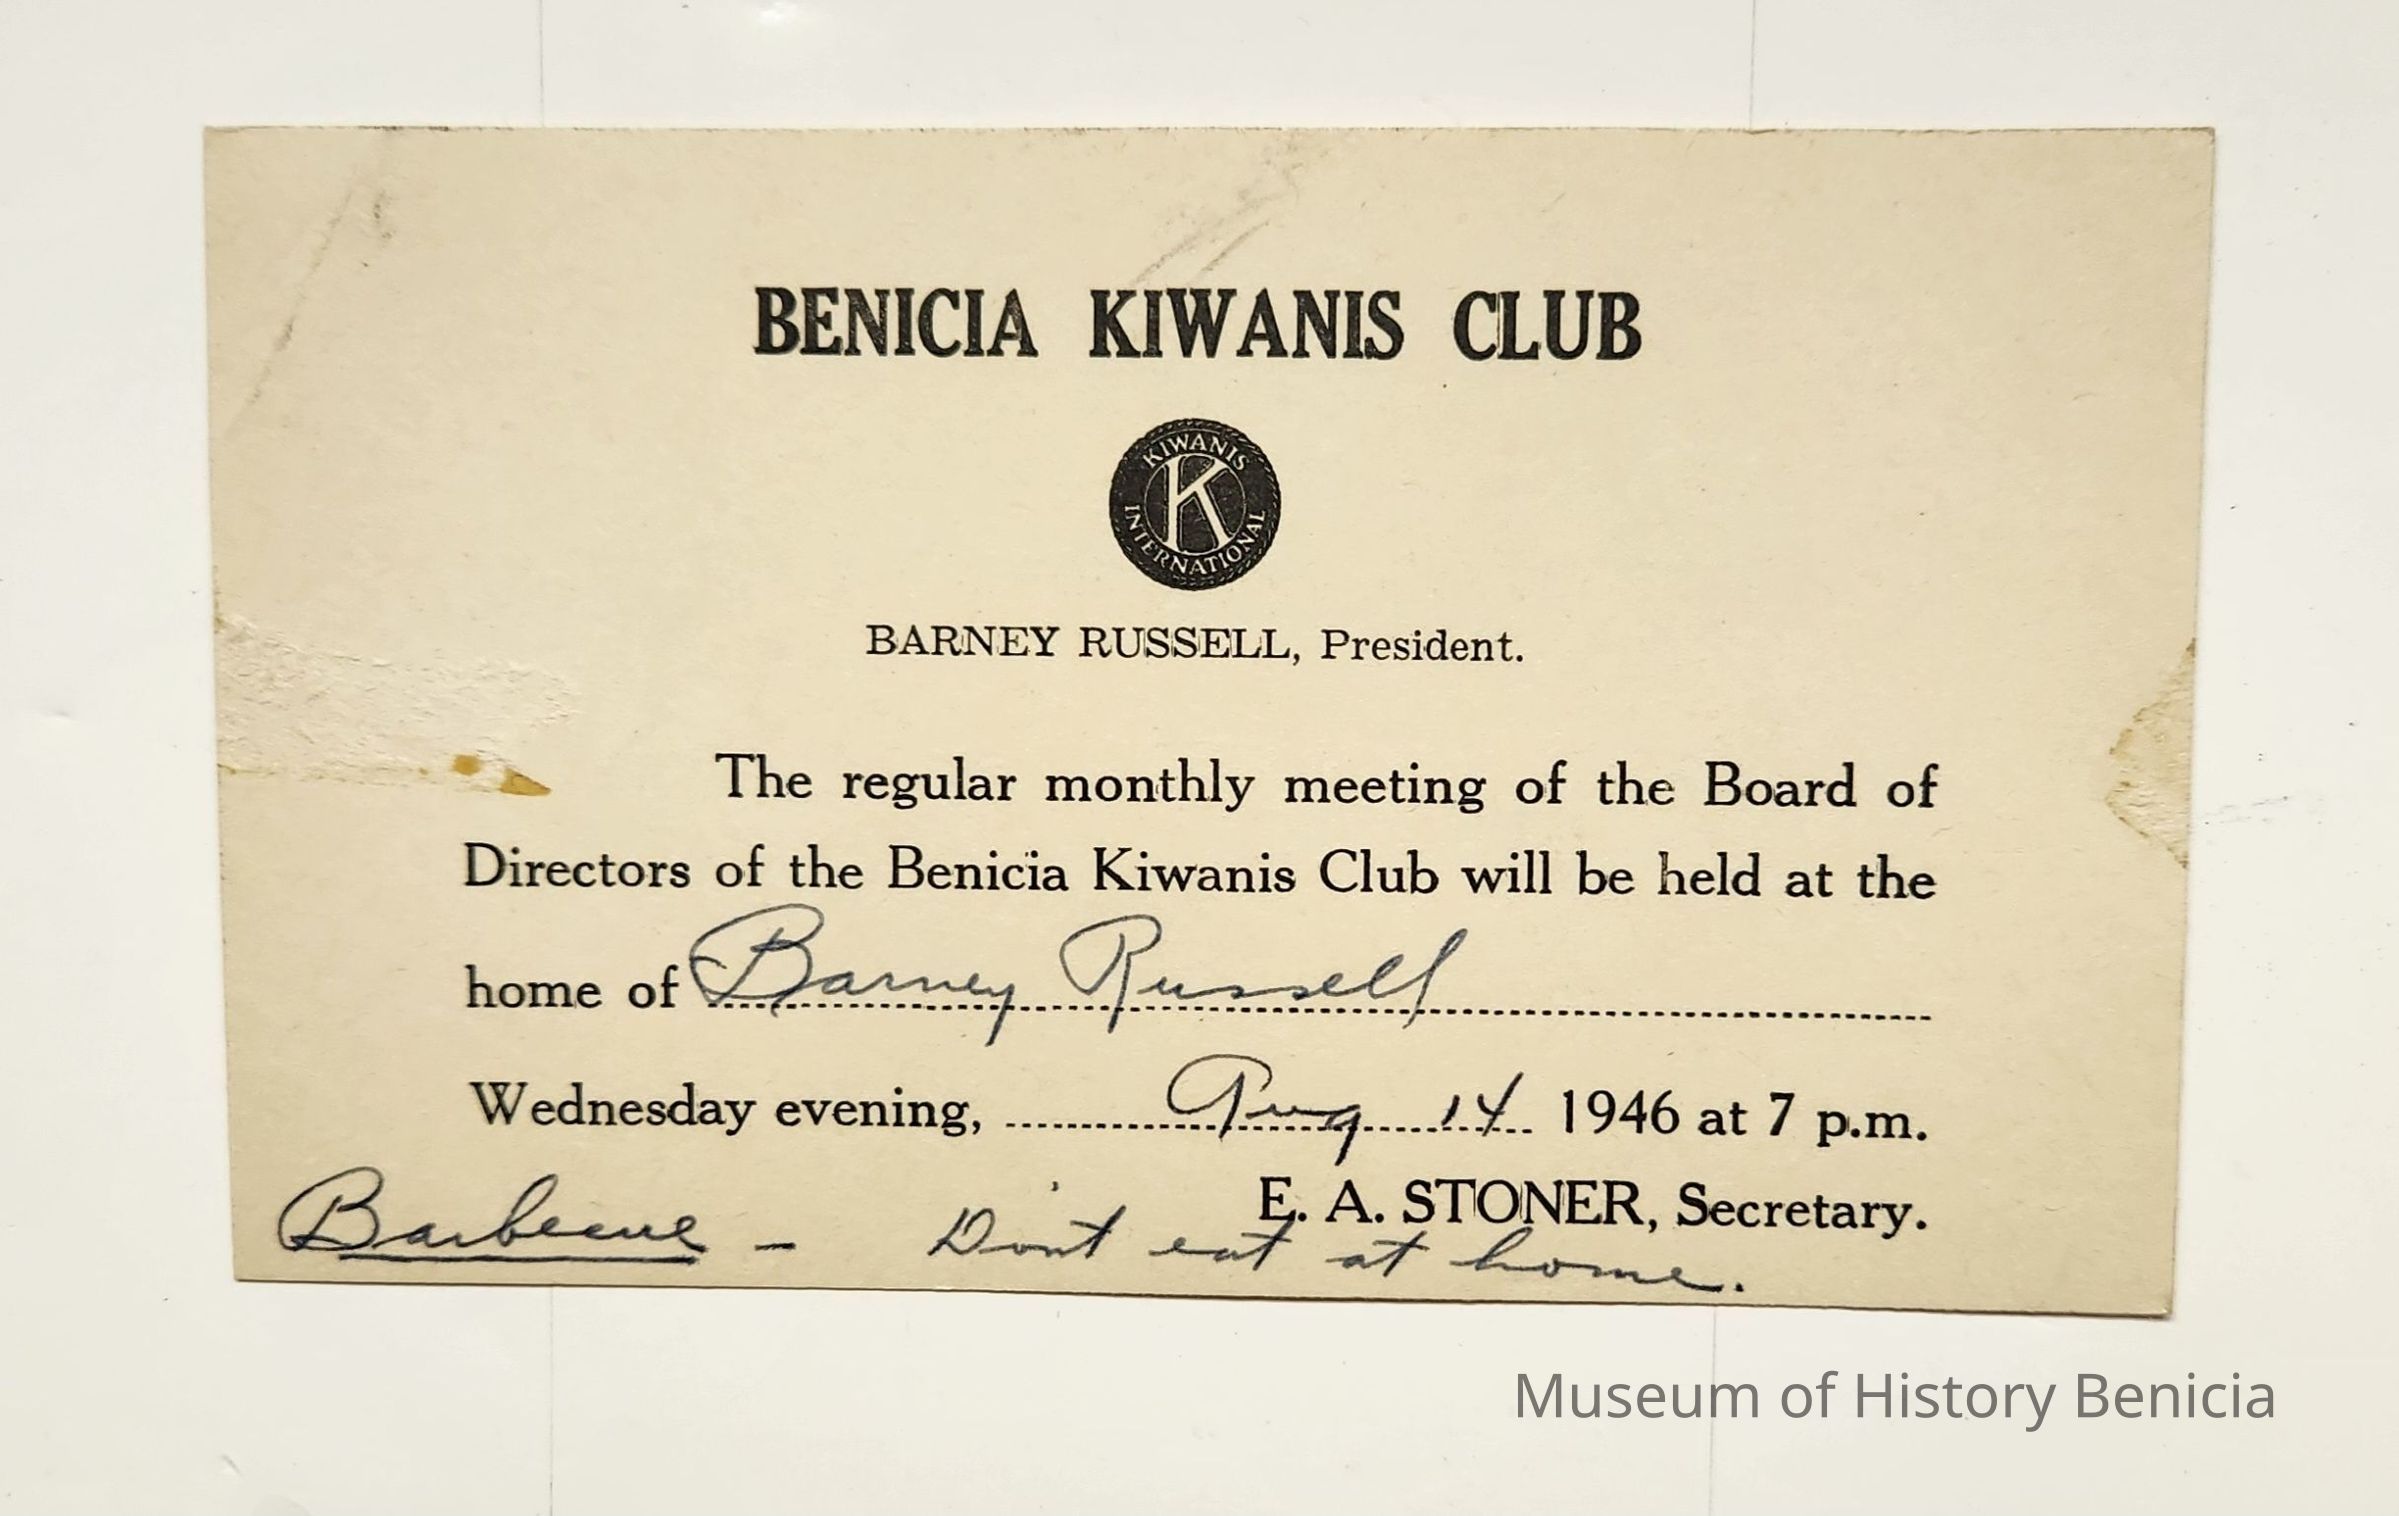 BENICIA KIWANIS CLUB
KIWANIS
K
INTERNATIONAL
BARNEY RUSSELL, President.
The regular monthly meeting of the Board of
Directors of the Benicia Kiwanis Club will be held at the
home of Barney Russell
Wednesday evening, Aug 14 1946 at 7 p.m.
E. A. STONER, Secretary.
Barbecue - Don't eat at home.
Museum of History Benicia